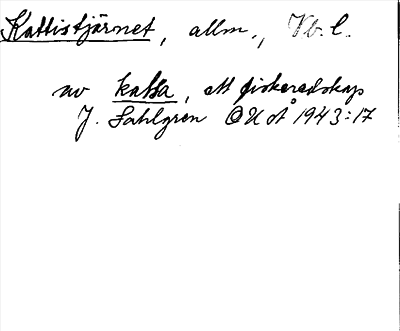 Kattistjärnet, allm., Vb. l.
av katsa, ett fiskeredskap
J. Sahlgren OUÅ 1943:17